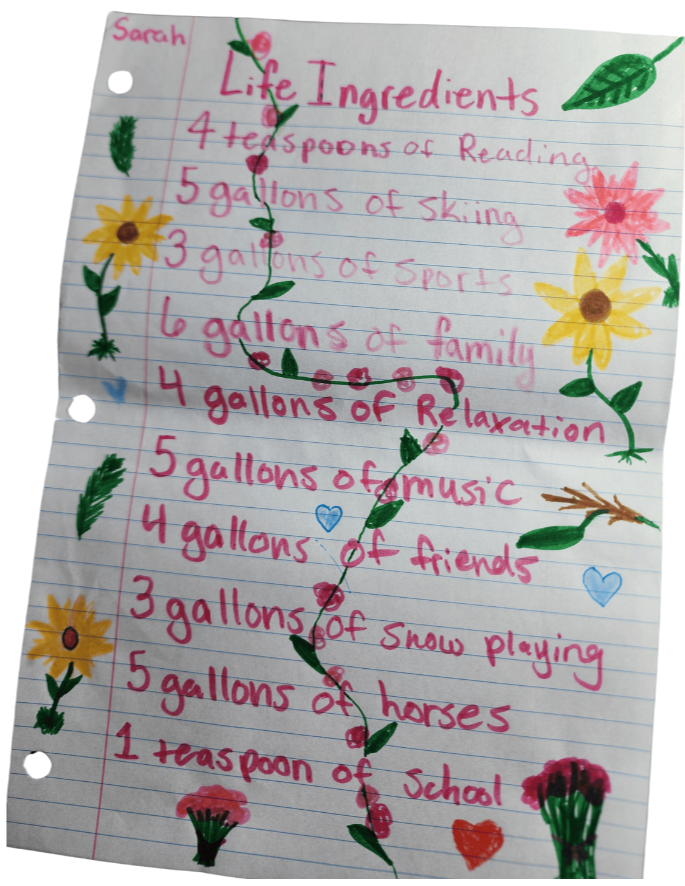 Sarah
Life Ingredients
4 teaspoons of Reading
5 gallons of skiing
3 gallons of sports
6 gallons of family
4 gallons of Relaxation
5 gallons of music
4 gallons of friends
3 gallons of snow playing
5 gallons of horses
1 teaspoon of school